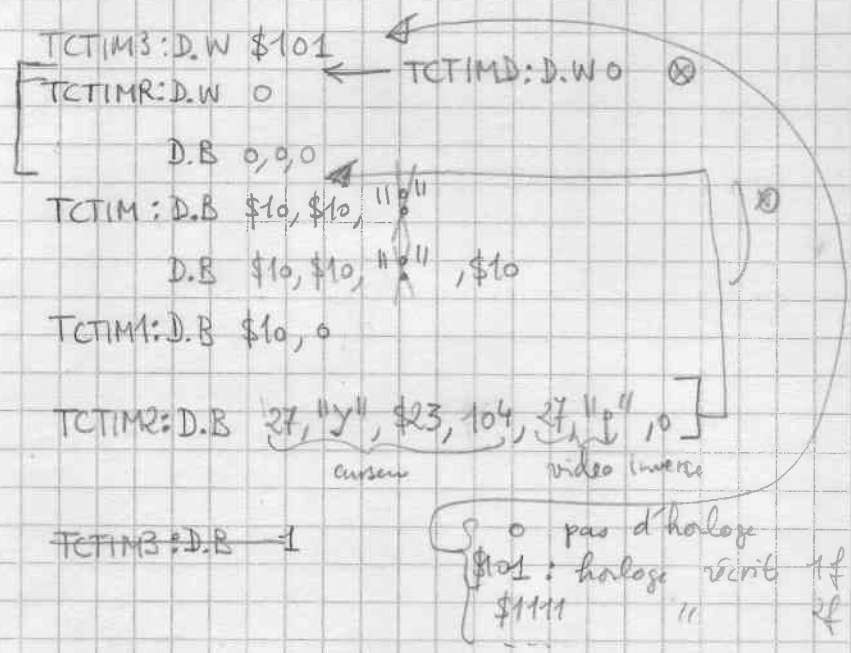 TCTIM3:D.W $101
TCTIMR:D.W 0 TCTIMD:D.W 0 ⊗
D.B 0,0,0
TCTIM:D.B $10,$10,":"
D.B $10,$10,":",$10
TCTIM1:D.B $10,0
TCTIM2:D.B 27,"Y",$23,104,27,"p",0
curseur video inverse
TCTIM3:D.B 1
0 pas d'horloge
$101 : horloge récrit 1f
$1111 " 2f